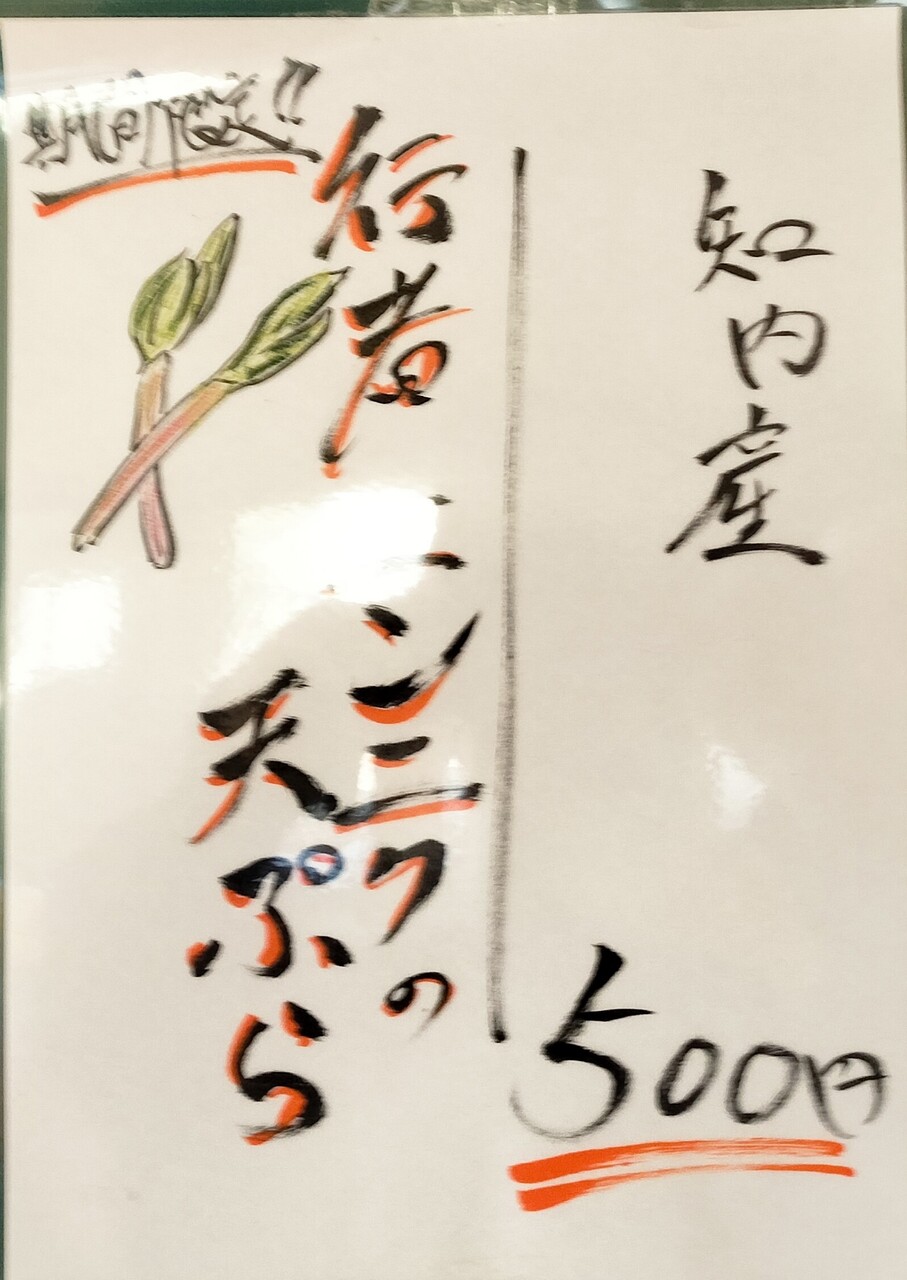 知内産
行者ニンニクの
天ぷら
期間限定!!
500円